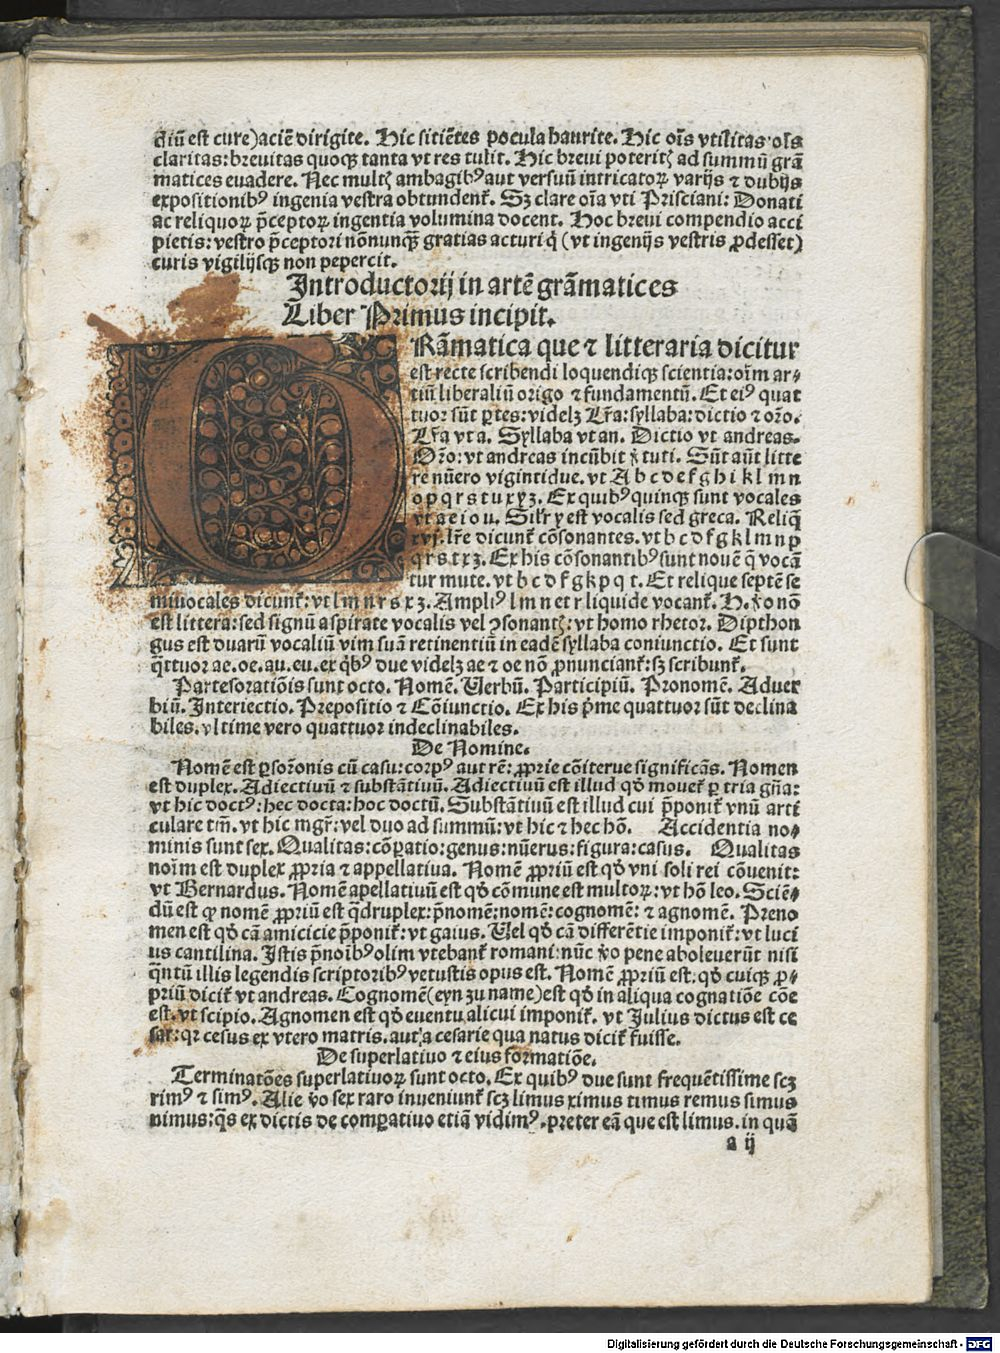 diū est cure) aciē dirigite. Hic sitiētes pocula haurite. Hic oīs vtilitas: oīs
claritas: breuitas quoqꝫ tanta vt res tulit. Hic breui poteritꝭ ad summū grā
matices euadere. Nec multꝭ ambagibꝰ aut versuū intricatoꝝ varijs ⁊ dubijs
expositionibꝰ ingenia vestra obtundenť. Sꝫ clare oīa vti Prisciani: Donati
ac reliquoꝝ p̄ceptoꝝ ingentia volumina docent. Hoc breui compendio acci
pietis: vestro p̄ceptori nōnunqꝫ̄ gratias acturi q̇ (vt ingenijs vestris ꝓdesset)
curis vigilijsqꝫ non pepercit.
Introductorij in artē grāmatices
Liber Primus incipit.
GRāmatica que ⁊ litteraria dicitur
est recte scribendi loquendiqꝫ scientia: oīm ar-
tiū liberaliū origo ⁊ fundamentū. Et eiꝰ quat
tuor sūt ꝑtes: videlꝫ Lr̄a: syllaba: dictio ⁊ or̄o.
Lr̄a vt a. Syllaba vt an. Dictio vt andreas.
Or̄o: vt andreas incūbit v̇tuti. Sūt aūt litte
re nūero vigintidue. vt A b c d e f g h i k l m n
o p q r s t u x y z. Ex quibꝰ quinqꝫ sunt vocales
vt a e i o u. Silr̄ y est vocalis sed greca. Reliq̄
xvj. lr̄e dicunť cōsonantes. vt b c d f g k l m n p
q r s t x z. Ex his cōsonantibꝰ sunt nouē q̄ vocā
tur mute. vt b c d f g k p q t. Et relique septē se
miuocales dicunť: vt l m n r s x z. Ampliꝰ l m n et r liquide vocanť. H. v̇o nō
est littera: sed signū aspirate vocalis vel ꝯsonantꝭ: vt homo rhetor. Dipthon
gus est duarū vocaliū vim suā retinentiū in eadē syllaba coniunctio. Et sunt
q̄ttuor ae. oe. au. eu. ex q̇bꝰ due videlꝫ ae ⁊ oe nō ꝓnuncianť: sꝫ scribunť.
Partes oratiōis sunt octo. Nomē. Verbū. Participiū. Pronomē. Aduer
biū. Interiectio. Prepositio ⁊ Cōiunctio. Ex his p̄me quattuor sūt declina
biles. vltime vero quattuor indeclinabiles.
De Nomine.
Nomē est ꝑs or̄onis cū casu: corpꝰ aut rē: ꝓprie cōiterue significās. Nomen
est duplex. Adiectiuū ⁊ substātiuū. Adiectiuū est illud qd̄ mouetˀ ꝑ tria gn̄a:
vt hic doctꝰ: hec docta: hoc doctū. Substātiuū est illud cui p̄ponitˀ vnū arti
culare tm̄. vt hic mgr̄: vel duo ad summū: vt hic ⁊ hec hō. Accidentia no-
minis sunt sex. Qualitas: cōꝑatio: genus: nūerus: figura: casus. Qualitas
noīm est duplex ꝓpria ⁊ appellatiua. Nomē ꝓpriū est qd̄ vni soli rei cōuenit:
vt Bernardus. Nomē apellatiuū est qd̄ cōmune est multoꝝ: vt hō leo. Sciē-
dū est ꝙ nomē ꝓpriū est q̄druplex: p̄nomē: nomē: cognomē: ⁊ agnomē. Preno
men est qd̄ cā amicicie p̄ponitˀ: vt gaius. Uel qd̄ cā differētie imponitˀ: vt luci
us cantilina. Istis p̄noībꝰ olim vtebanť romani: nūc v̇o pene aboleuerūt nisi
q̄ntū illis legendis scriptoribꝰ vetustis opus est. Nomē ꝓpriū est. qd̄ cuiqꝫ ꝓ-
priū dicitˀ vt andreas. Cognomē (eyn zu name) est qd̄ in aliqua cognatiōe cōe
est. vt scipio. Agnomen est qd̄ euentu alicui imponitˀ. vt Julius dictus est ce
sar: qꝛ cesus ex vtero matris. aut a cesarie qua natus dicitˀ fuisse.
De superlatiuo ⁊ eius formatiōe.
Terminatōes superlatiuoꝝ sunt octo. Ex quibꝰ due sunt frequētissime scꝫ
rimꝰ ⁊ simꝰ. Alie v̇o sex raro inueniunť scꝫ limus ximus timus remus simus
nimus: q̄s ex dictis de comꝑatiuo etiā vidimꝰ. preter eā que est limus. in quā
a ij
Digitalisierung gefördert durch die Deutsche Forschungsgemeinschaft - DFG